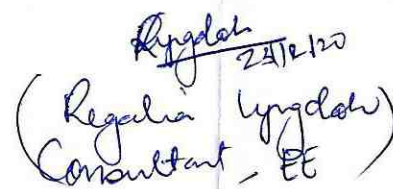 Rlyngdoh
23/12/20
(Regalia Lyngdoh)
Consultant, EE